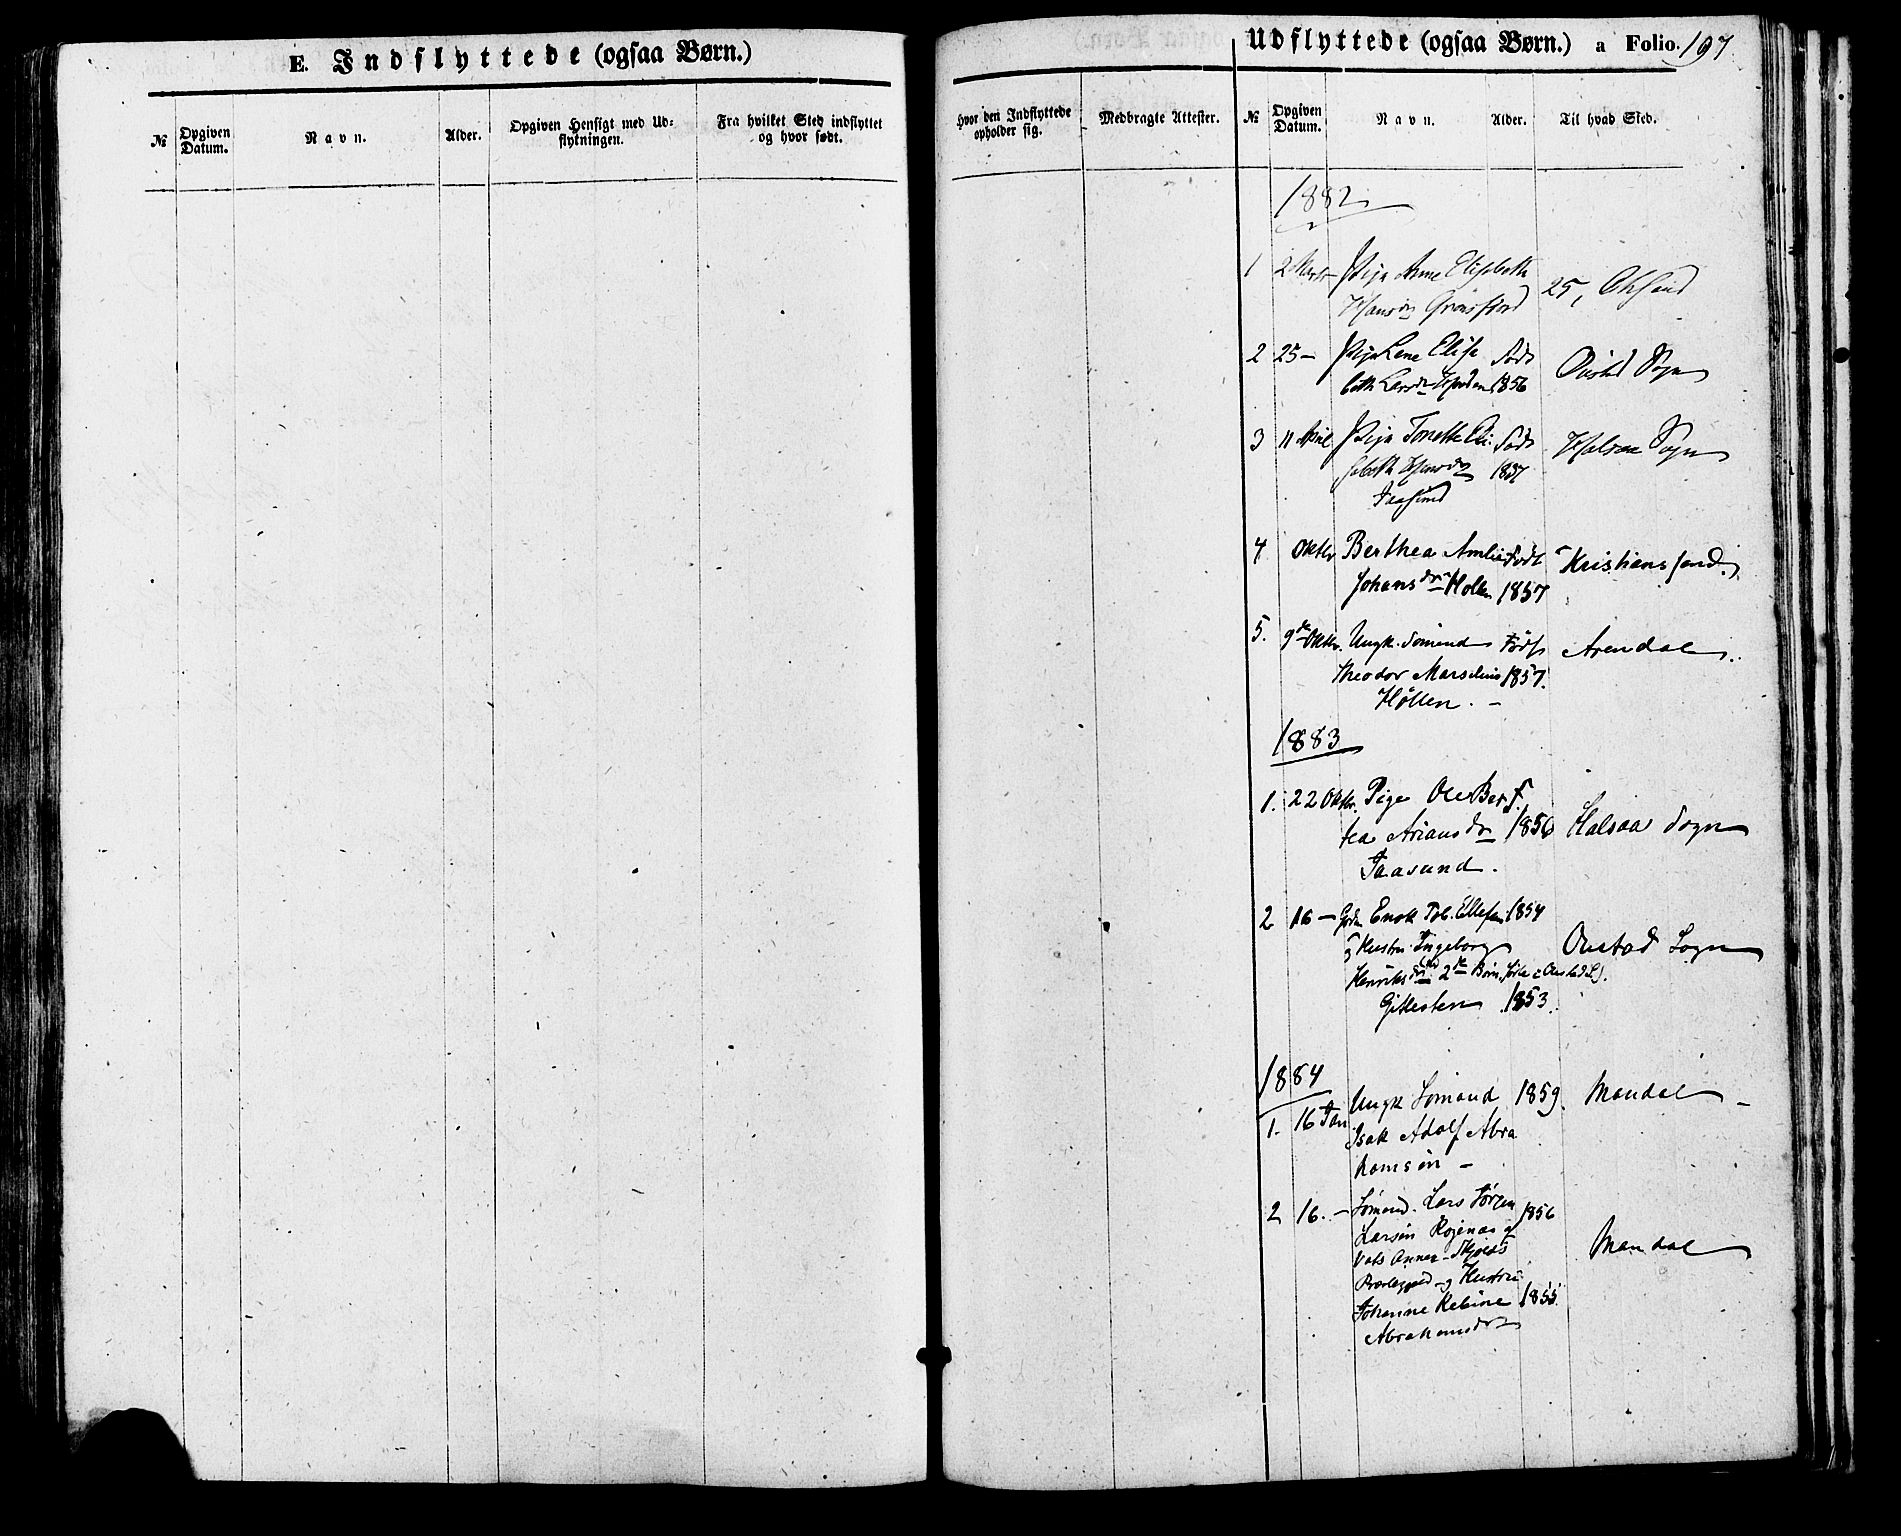 E. Indflyttede (ogsaa Børn.)
№
Opgiven Datum.
Navn.
Alder.
Opgiven Hensigt med Udflytningen.
Fra hvilket Sted indflyttet og hvor født.
Udflyttede (ogsaa Børn.) a Folio. 197
Hvor den Indflyttede opholder sig.
Medbragte Attester.
№
Opgiven Datum.
Navn.
Alder.
Til hvad Sted.
1882
1 2 Marts Pige Anne Elisabeth
Hansdr Grønsfjord 25,
2 25 – Pige Lene Elisa Født Øiestad Sogn
beth Larsdr 1856
3 11 April Pige Tonette Eli Født Halsaa Sogn
sabeth Hansdr 1857
Faasund
4 Oktbr Berthea Amlie Født Kristiansand.
Johansdr Hollen 1857
5. 9de Oktbr. Ungk. Sømand Født Arendal.
Theodor Marselius 1857.
Høllen. –
1883
1. 22 Oktbr. Pige Ole Ber f.
tea Ariansdr 1856 Halsaa Sogn
Faasund.
2 16 – Enok Tob. Ellefsen 1854
og Hustru Ingeborg Øiestad Sogn
Henriksdr 2de Børn
Gitlesten 1853.
1884
1. 16 Jan Ungk Sømand 1859. Mandal –
Isak Adolf Abra
hamsen –
2 16. – Sømand. Lars Jørgen 1856
Larsen Rojenæs
Mandal
og Hustru
Johanne Rebine 1855
Abrahamsdr